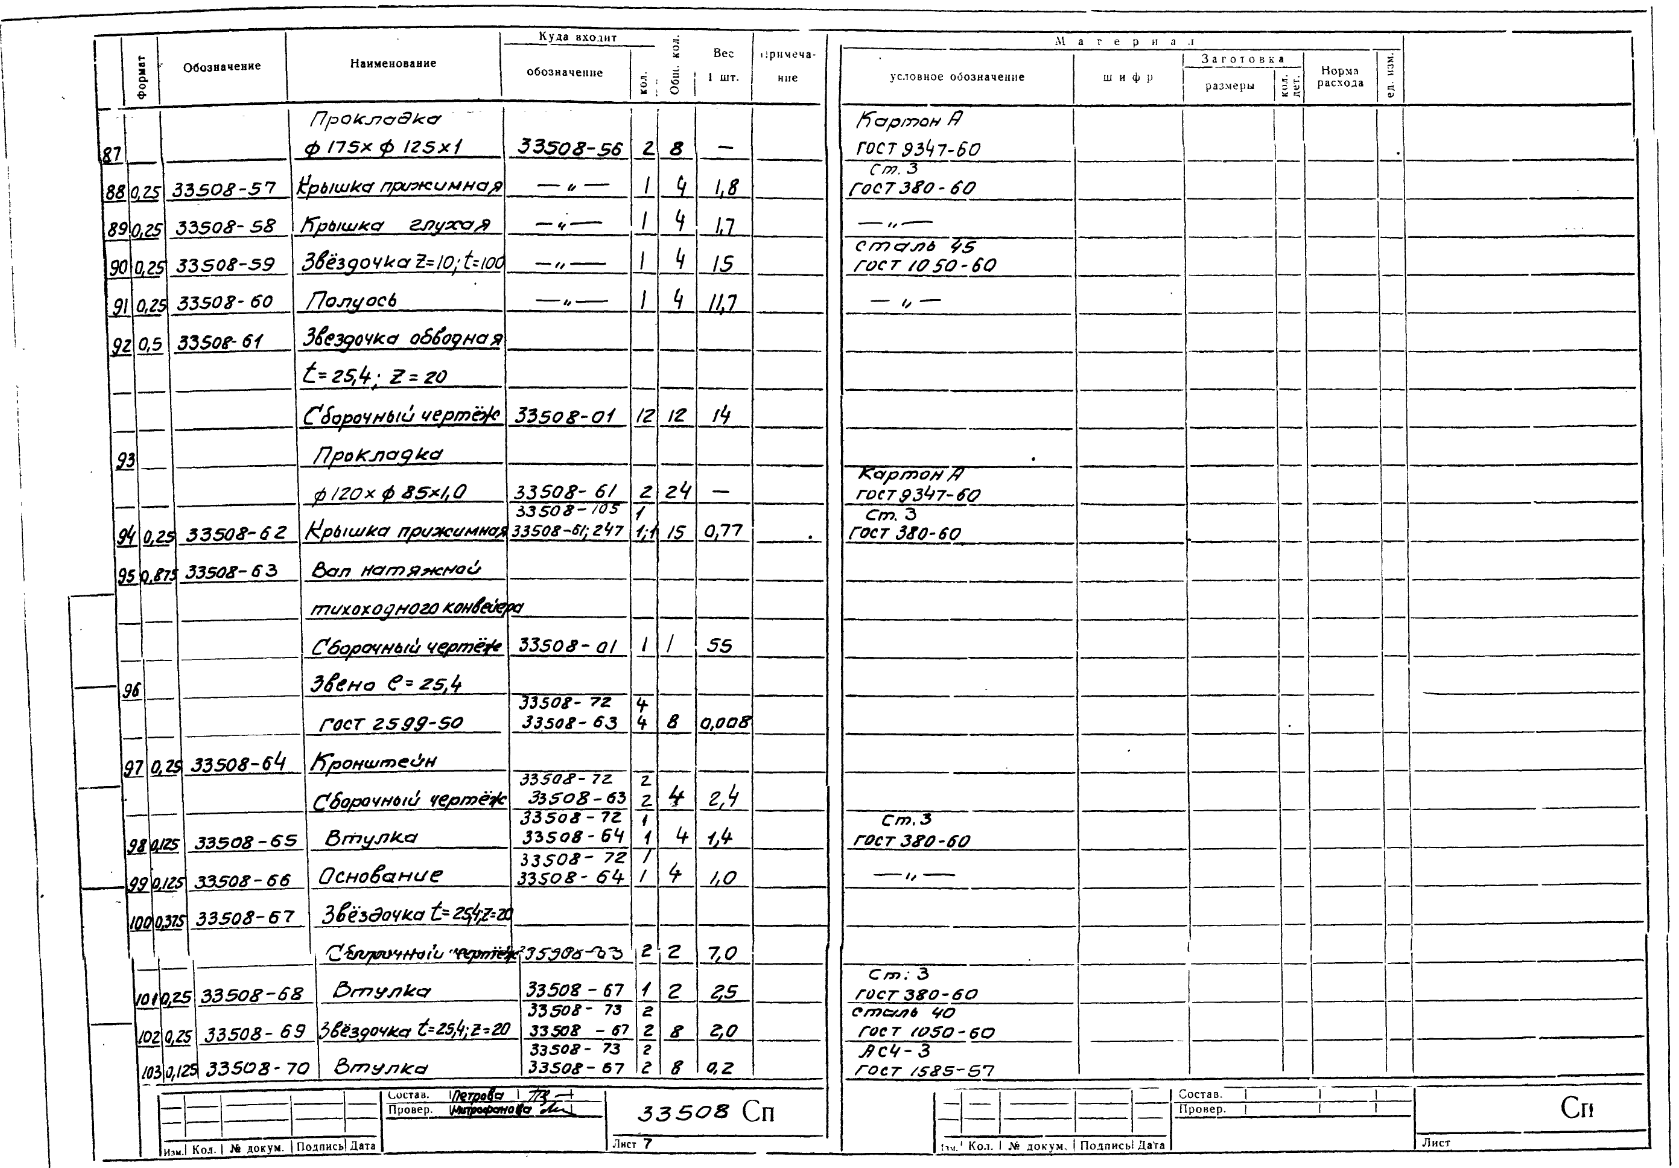 Формат Обозначение Наименование Куда входит обозначение кол. Общ. кол. Вес 1 шт. Примечание Материал условное обозначение шифр Заготовка размеры кол. дет. Норма расхода ед. изм.
Прокладка Картон А
87 ф 175х ф 125х1 33508-56 2 8 — ГОСТ 9347-60
Ст. 3
88 0,25 33508-57 Крышка прижимная —"— 1 4 1,8 ГОСТ 380-60
89 0,25 33508-58 Крышка глухая —"— 1 4 1,7 —"—
сталь 45
90 0,25 33508-59 Звёздочка z=10; t=100 —"— 1 4 15 ГОСТ 1050-60
91 0,25 33508-60 Полуось —"— 1 4 11,7 —"—
92 0,5 33508-61 Звездочка обводная
t=25,4; z=20
Сборочный чертёж 33508-01 12 12 14
93 Прокладка
Картон А
ф 120х ф 85х1,0 33508-61 2 24 — ГОСТ 9347-60
33508-105 1 Ст. 3
94 0,25 33508-62 Крышка прижимная 33508-61; 247 1;1 15 0,77 ГОСТ 380-60
95 0,875 33508-63 Вал натяжной
тихоходного конвейера
Сборочный чертёж 33508-01 1 1 55
96 Звено е=25,4
33508-72 4
ГОСТ 2599-50 33508-63 4 8 0,008
97 0,25 33508-64 Кронштейн
33508-72 2
Сборочный чертёж 33508-63 2 4 2,4
33508-72 1 Ст. 3
98 0,125 33508-65 Втулка 33508-64 1 4 1,4 ГОСТ 380-60
33508-72 1
99 0,125 33508-66 Основание 33508-64 1 4 1,0 —"—
100 0,375 33508-67 Звёздочка t=25,4; z=20
Сборочный чертёж 2 2 7,0
Ст. 3
101 0,25 33508-68 Втулка 33508-67 1 2 2,5 ГОСТ 380-60
33508-73 2 сталь 40
102 0,25 33508-69 Звёздочка t=25,4; z=20 33508-67 2 8 2,0 ГОСТ 1050-60
33508-73 2 АСЧ-3
103 0,125 33508-70 Втулка 33508-67 2 8 0,2 ГОСТ 1585-57
Состав. Петрова
Провер. Митрофанова
33508 Сп
Изм. Кол. № докум. Подпись Дата Лист 7
Состав.
Провер.
Сп
Изм. Кол. № докум. Подпись Дата Лист